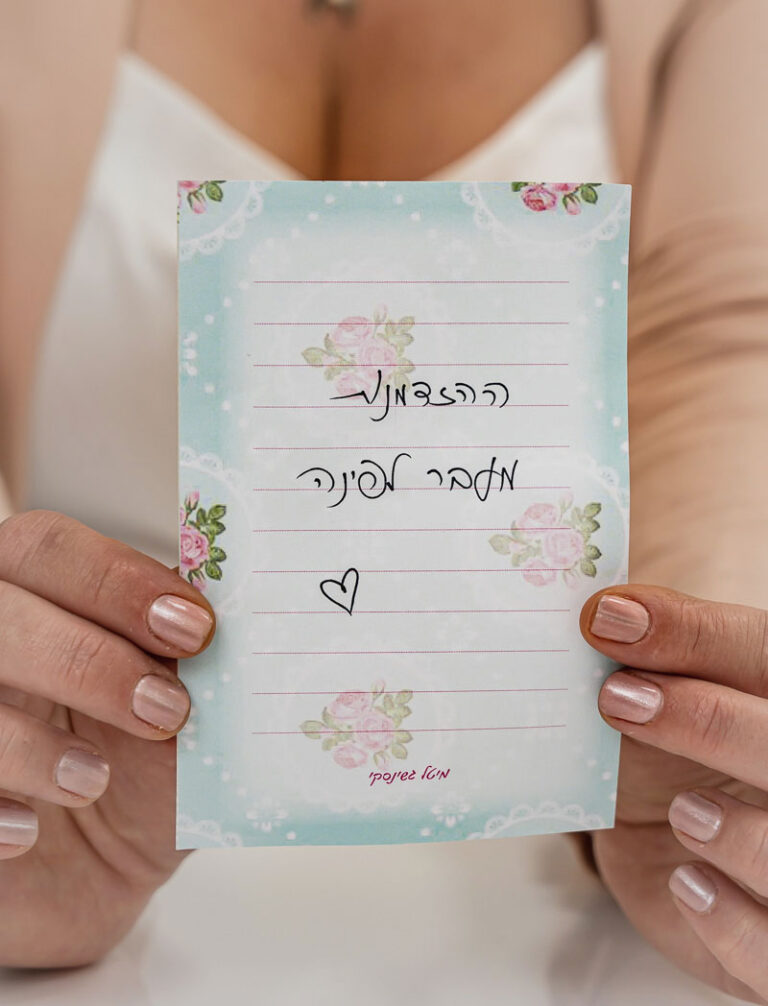 ההזדמנות
מעבר לפינה
מיטל גשינסקי